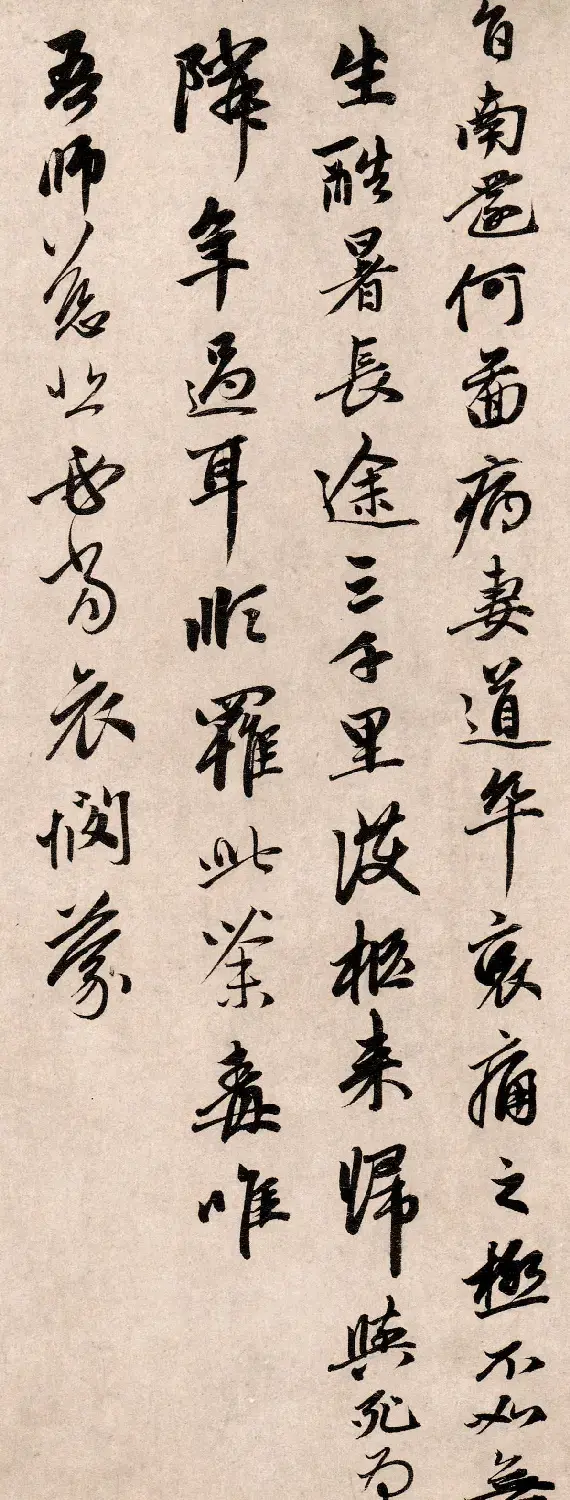 旨南還何啚病妻道卒哀痛之極不如無
生酷暑長途三千里護柩来歸與死為
隣年過耳順罹此荼毒唯
吾師慈悲必當哀憫蒙